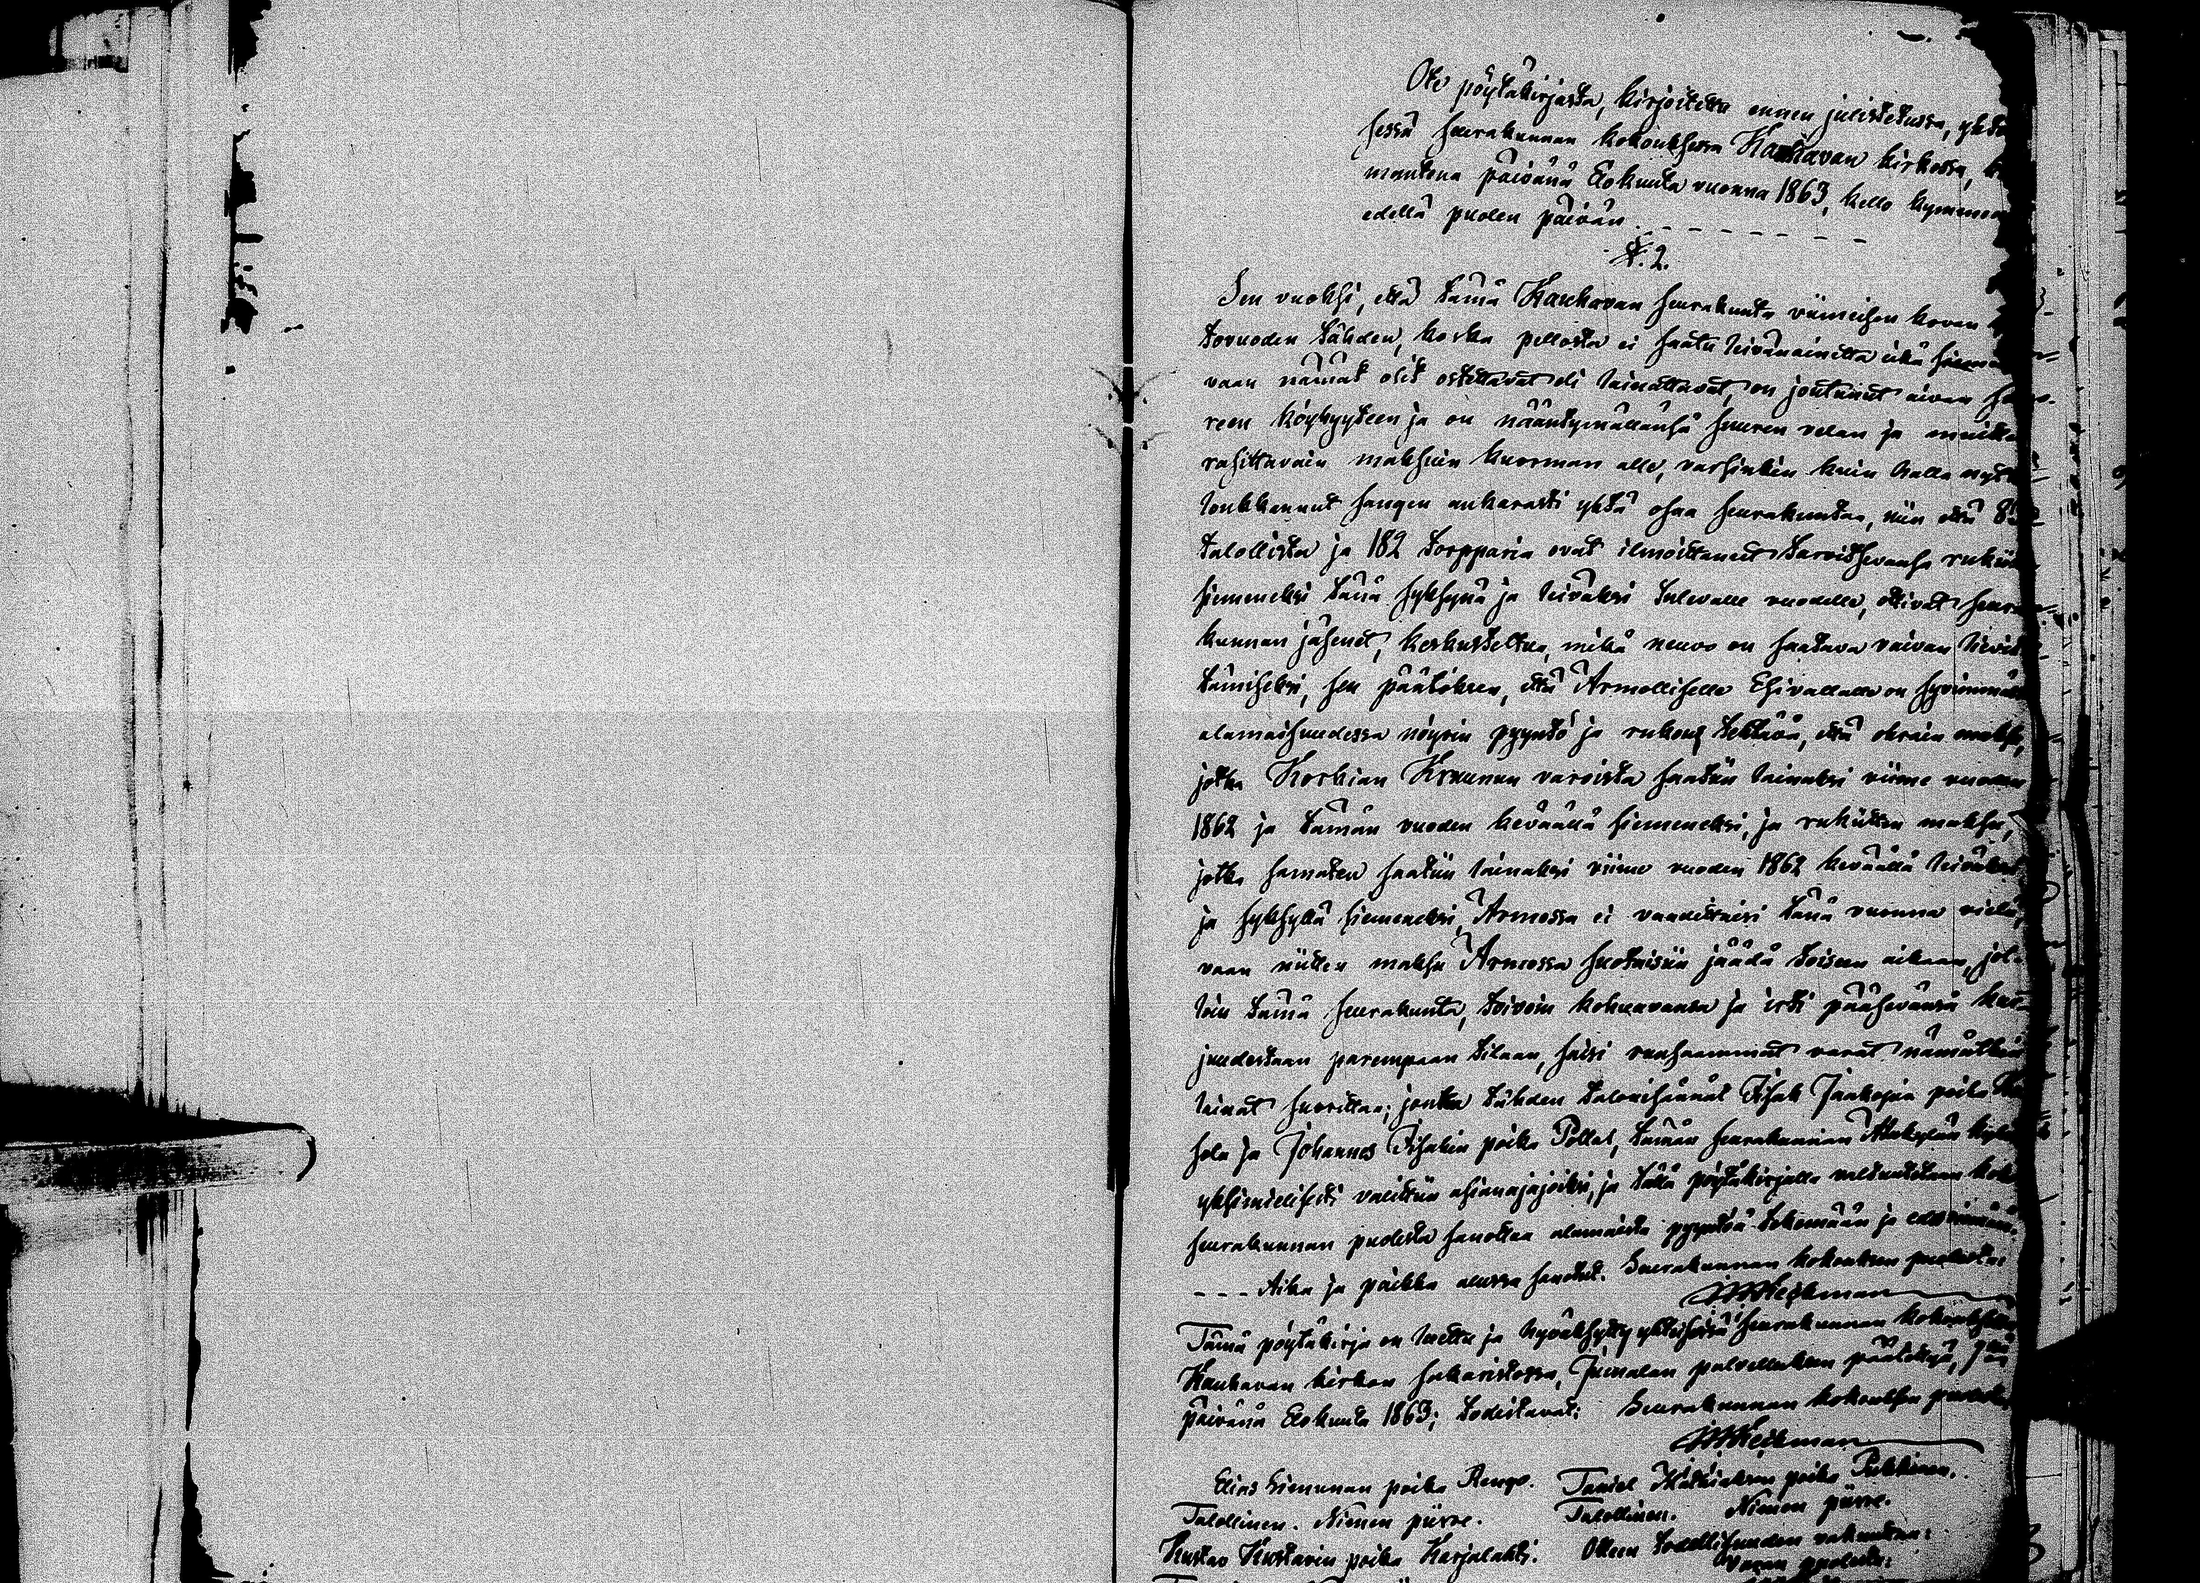 Ote pöytäkirjasta, kirjoitettu ennen julistetussa, yhtei
sessä seurakunnan kokouksessa Kauhavan kirkossa,
mantena päivänä Elokuuta vuonna 1863, kello kymmenen
edellä puolen päivän - - - - - - - -
§. 2.
Sen vuoksi, että tämä Kauhavan seurakunta viimeisen kovan
tovuoden tähden, koska pellosta ei saatu leivänainetta eikä siemen
vaan nämät olit ostettavat eli lainattavat, on joutunut aivan suu-
reen köyhyyteen ja on nääntymällänsä suuren velan ja muitten
rasittavain maksuin kuorman alle, varsinkin kuin halla nyt
loukkannut sangen ankarasti yhtä osaa seurakuntaa, niin että
talollista ja 182 torpparia ovat ilmoittaneet tarvitsevansa rukiita
siemeneksi tänä syksynä ja leiväksi tulevalle vuodelle, ottivat seura-
kunnan jäsenet, keskusteltua, mikä neuvo on saatava vaivan lievit-
tämiseksi, sen päätöksen, että Armolliselle Esivallalle on syvimmässä
alamaisuudessa nöyrin pyyntö ja rukous tehtävä, että ohrain maksu,
jotka Korkian Kruunun varoista saatiin lainaksi viime vuonna
1862 ja tämän vuoden keväällä siemeneksi, ja rukiitten maksu,
jotka samaten saatiin lainaksi viime vuoden 1862 keväällä leiväksi
ja syksyllä siemeneksi, Armossa ei vaadittaisi tänä vuonna vielä,
vaan niitten maksu Armossa suotaisiin jäädä toiseen aikaan, jol-
loin tämä seurakunta, toivoin kohuavansa ja irti pääsevänsä kur-
juudestaan parempaan tilaan, saisi runsaammat varat nämätkin
lainat suorittaa; jonka tähden talonisännät Iisak Jaakopin poika
sola ja Johannes Iisakin poika Pollal, tämän seurakunnan Alakylän kylästä
yksimielisesti valittiin asianajajoiksi, ja tällä pöytäkirjalla valtuutetaan koko
seurakunnan puolesta sanottua alamaista pyyntöä tekemään ja
- - - Aika ja paikka alussa sanotut. Seurakunnan kokouksen puolesta:
Tämä pöytäkirja on luettu ja hyväksytty yhteisessä seurakunnan kokouksessa
Kauhavan kirkon sakaristossa, Jumalan palvelluksen päätettyä,
päivänä Elokuuta 1863; todistavat: Seurakunnan kokouksen puolesta
Elias Simunan poika Rengo. Taniel Matiaksen poika Pukkinen.
Talollinen. Nimen piirre. Talollinen. Nimen piirre.
Kustav Kustavin poika Karjalahti. Otteen todellisuuden vakuuttaa:
Viran puolesta: